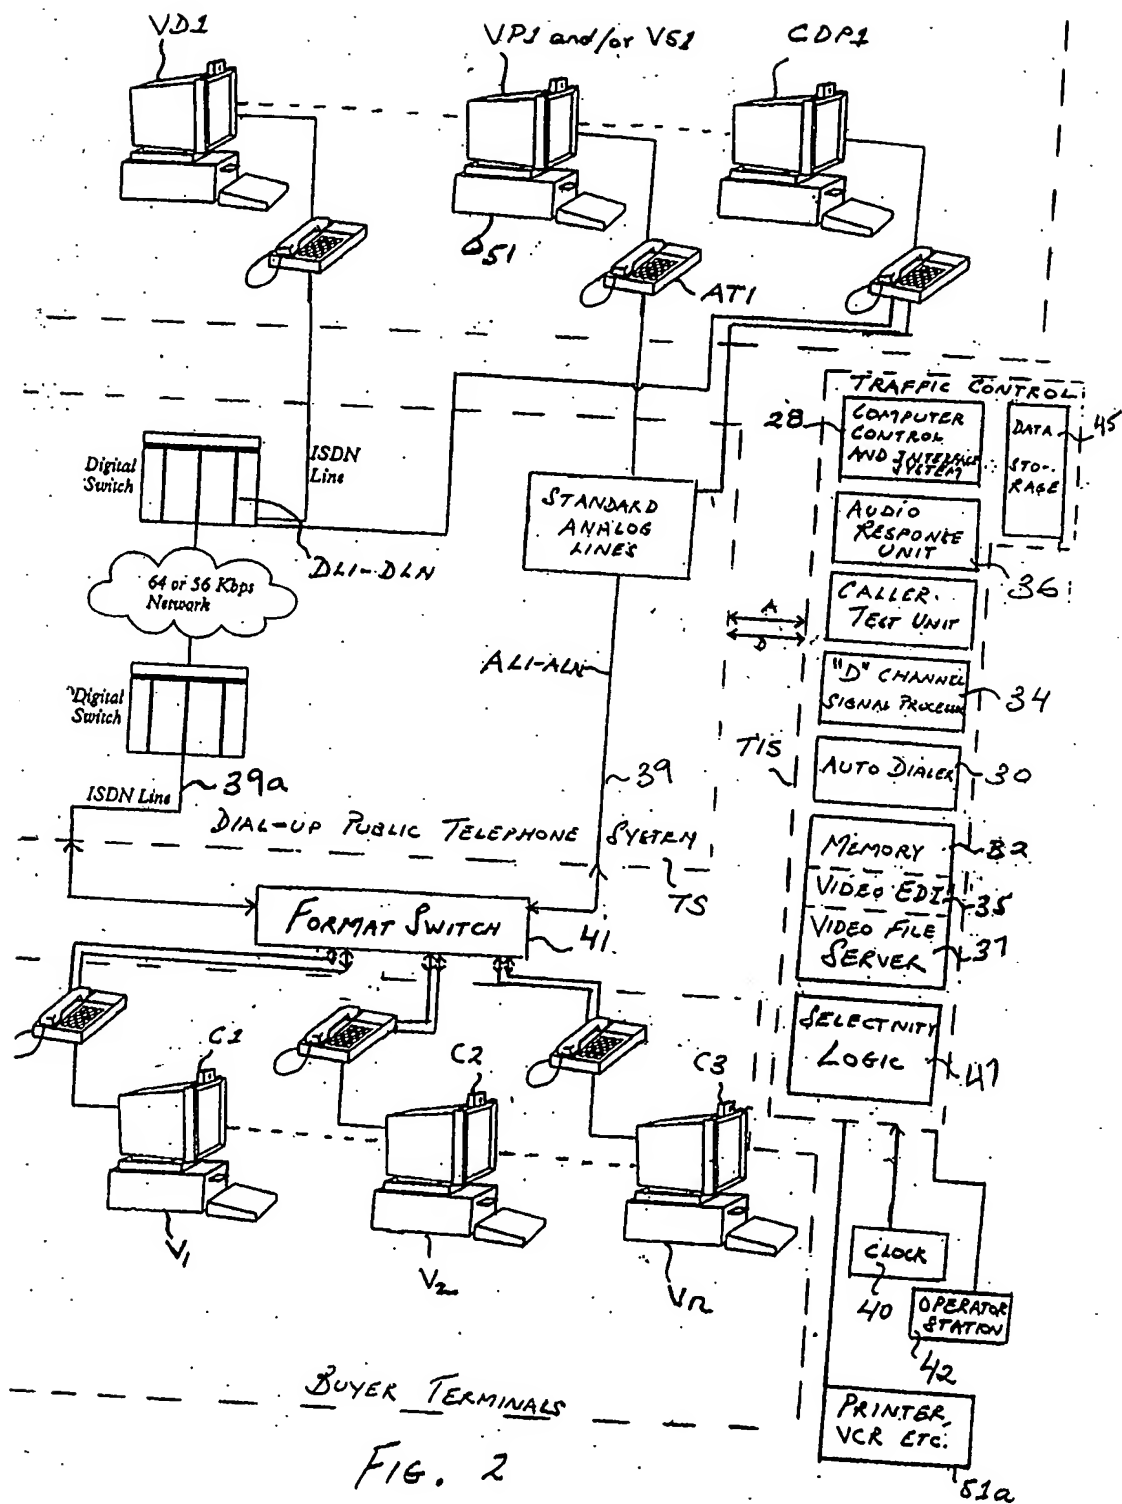 VD1
VP1 and/or VS1
CDP1
51
AT1
TRAFFIC CONTROL
28
COMPUTER
CONTROL
AND INTERFACE
SYSTEM
DATA
STO-
RAGE
45
Digital
Switch
ISDN
Line
STANDARD
ANALOG
LINES
AUDIO
RESPONSE
UNIT
36
DL1-DLN
64 or 56 Kbps
Network
CALLER
TEST UNIT
A
D
AL1-ALN
"D" CHANNEL
SIGNAL PROCESSOR
34
Digital
Switch
TIS
39a
39
AUTO DIALER
30
ISDN Line
DIAL-UP PUBLIC TELEPHONE SYSTEM
MEMORY
32
TS
VIDEO EDI
35
FORMAT SWITCH
41
VIDEO FILE
SERVER
37
SELECTIVITY
LOGIC
47
C1
C2
C3
V1
V2
Vn
CLOCK
40
OPERATOR
STATION
42
BUYER TERMINALS
PRINTER,
VCR ETC.
51a
FIG. 2